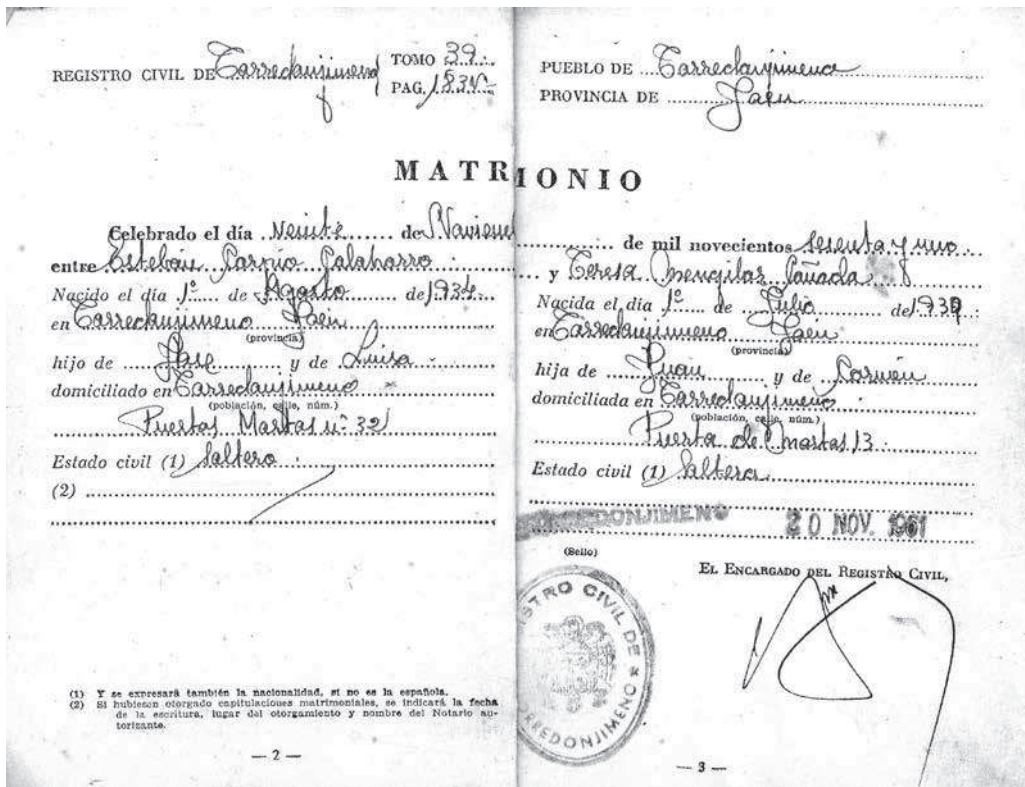 REGISTRO CIVIL DE Torredonjimeno
TOMO 39
PAG.
MATRIMONIO
Celebrado el día Veinte de Noviem
entre Esteban Carpio Calaharro
Nacido el día 1º de Agosto de 1934
en Torredonjimeno Jaén
(provincia)
hijo de José y de Luisa
domiciliado en Torredonjimeno
(población, calle, núm.)
Puertas Martos nº 32
Estado civil (1) Soltero
(2)
(1) Y se expresará también la nacionalidad, si no es la española.
(2) Si hubiesen otorgado capitulaciones matrimoniales, se indicará la fecha
de la escritura, lugar del otorgamiento y nombre del Notario au-
torizante.
— 2 —
PUEBLO DE Torredonjimeno
PROVINCIA DE Jaén
de mil novecientos sesenta y uno
y Teresa Mengíbar Cañada
Nacida el día 1º de Julio de 1939
en Torredonjimeno Jaén
(provincia)
hija de Juan y de Carmen
domiciliada en Torredonjimeno
(población, calle, núm.)
Puerta de Martos 13
Estado civil (1) Soltera
REDONJIMENO 20 NOV. 1961
(Sello)
EL ENCARGADO DEL REGISTRO CIVIL,
STRO CIVIL DE
RREDONJIMENO
— 3 —